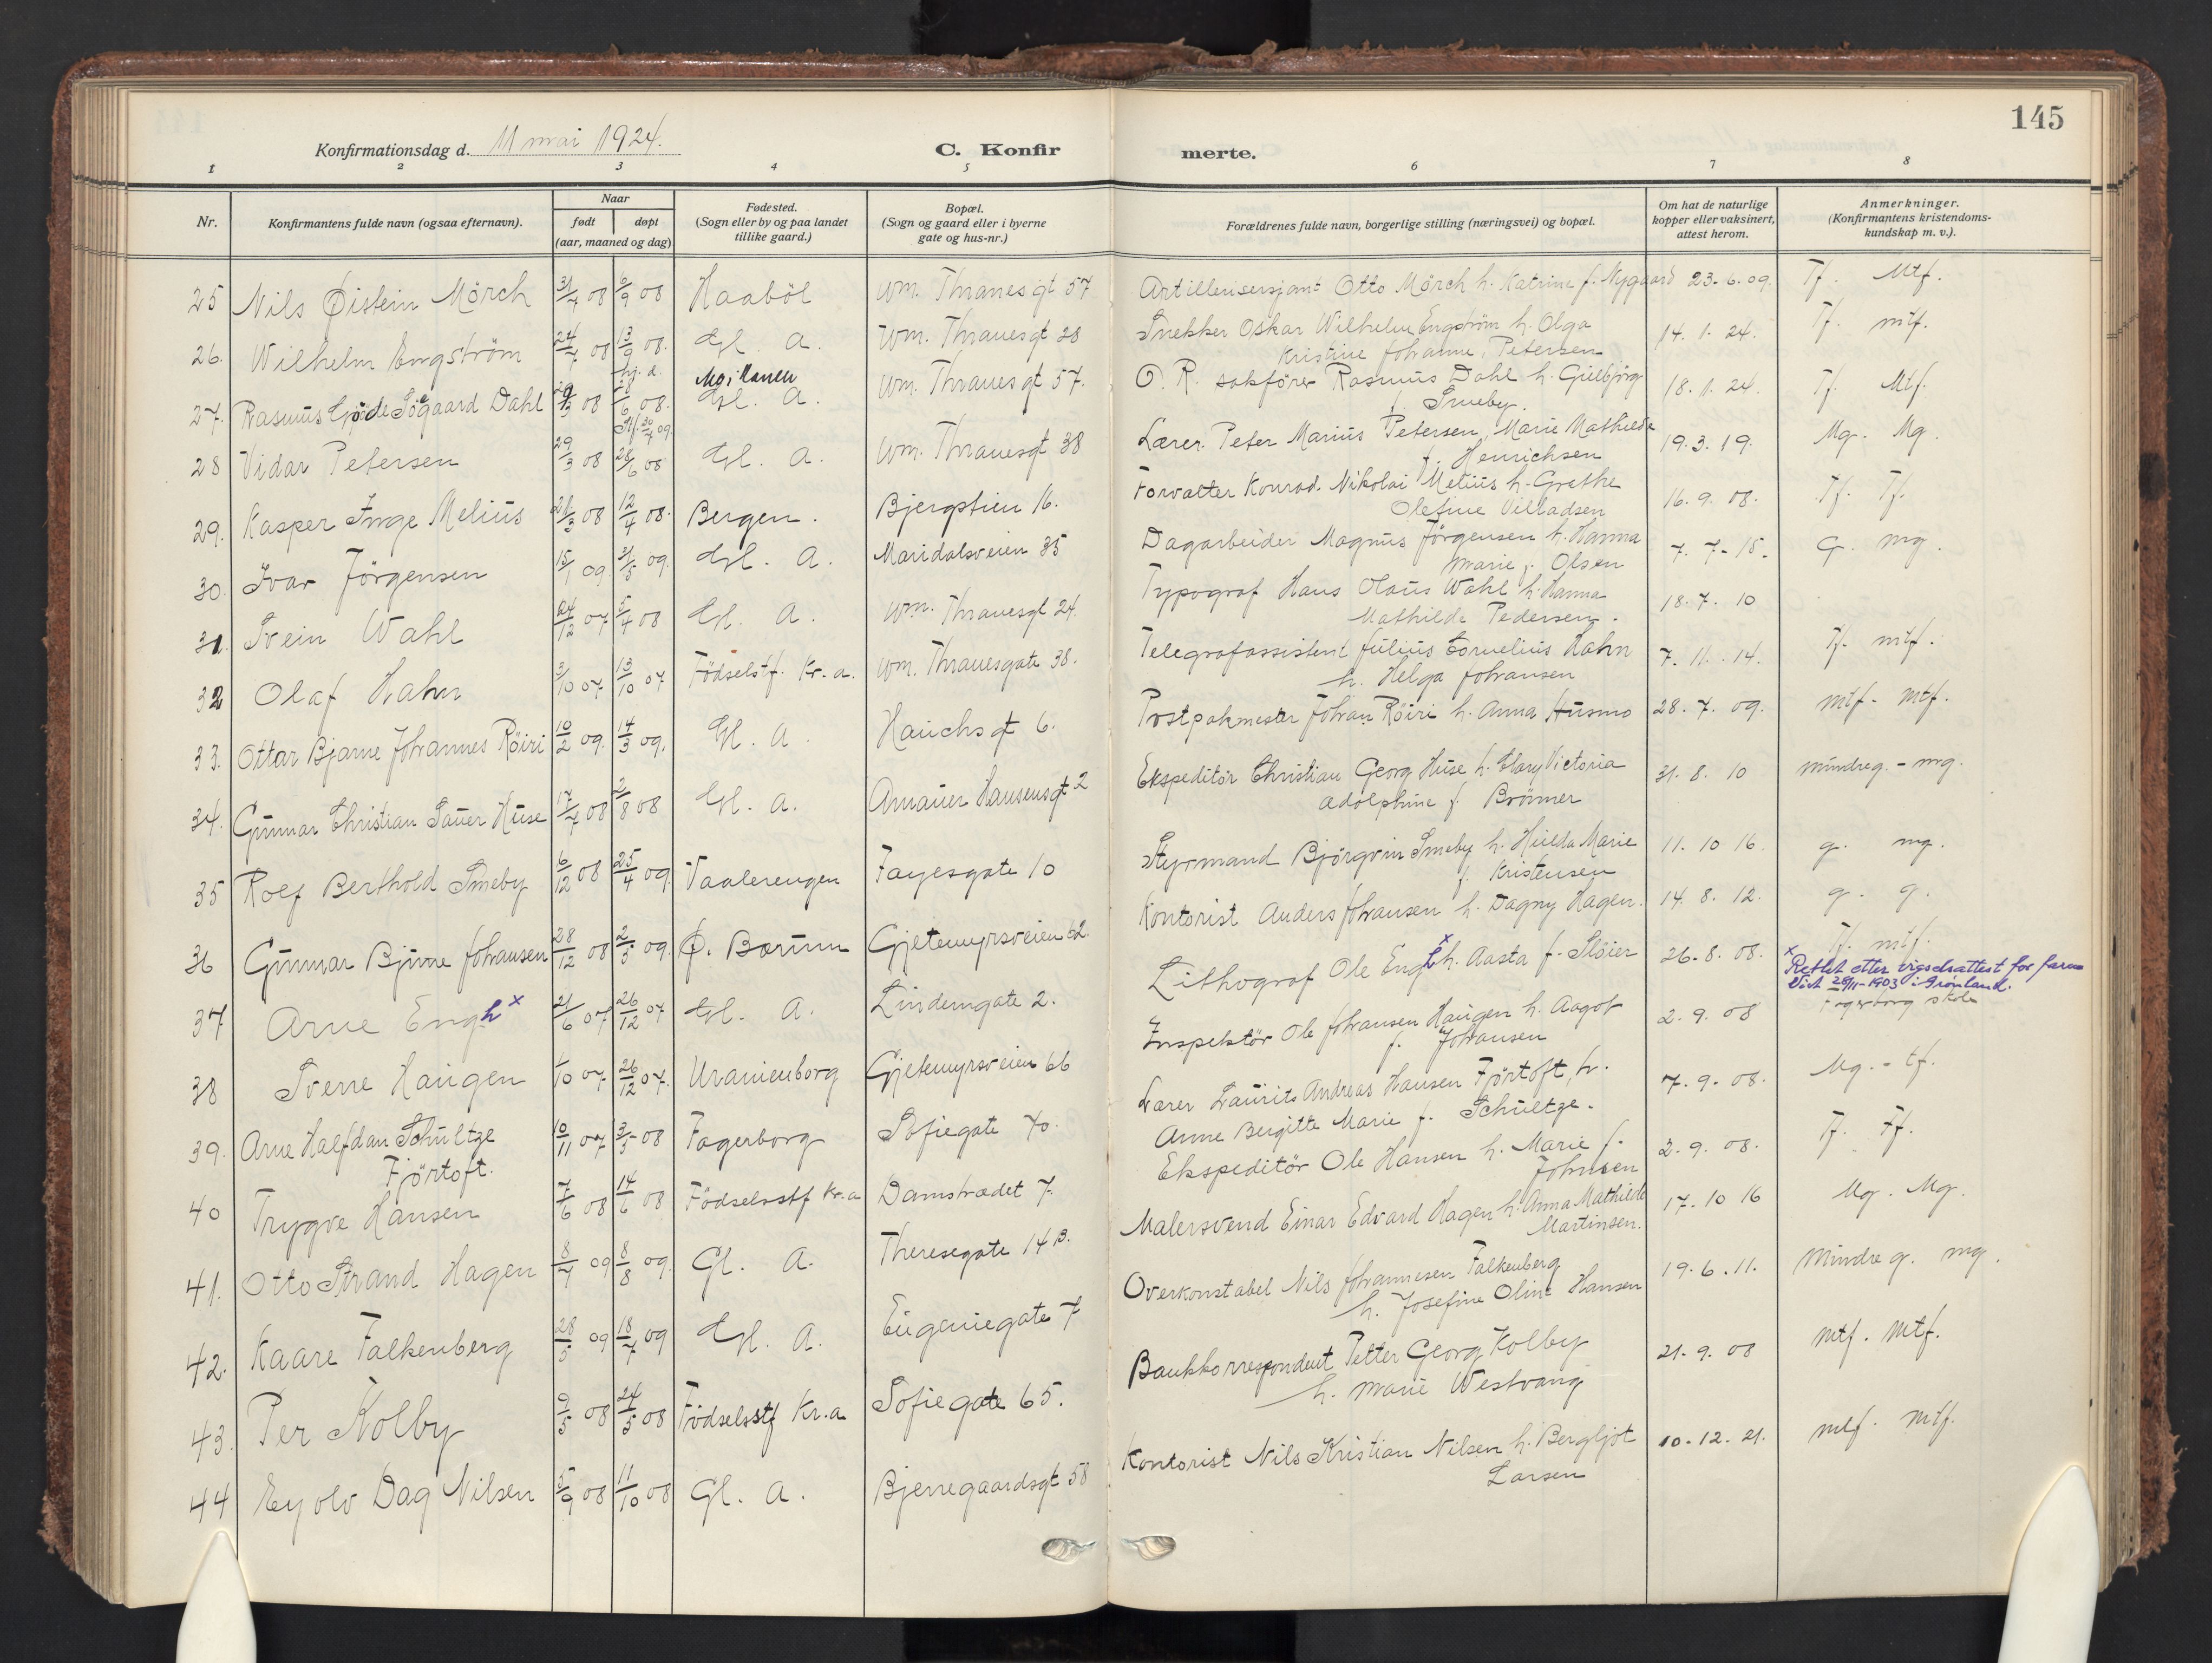 145
Konfirmationsdag d. 11 mai 1924.
C. Konfirmerte.
1 2 3 4 5 6 7 8
Nr.
Konfirmantens fulde navn (ogsaa efternavn).
Naar
født døpt
(aar, maaned og dag)
Fødested.
(Sogn eller by og paa landet
tillike gaard.)
Bopæl.
(Sogn og gaard eller i byerne
gate og hus-nr.)
Forældrenes fulde navn, borgerlige stilling (næringsvei) og bopæl.
Om hat de naturlige
kopper eller vaksinert,
attest herom.
Anmerkninger.
(Konfirmantens kristendoms-
kundskap m. v.).
25 Nils Øistein Mörch 31/7 08 6/9 08 Haaböl Wm. Thranesgt 57 Artillerisersjant Otto Mörch h. Katrine f. Nygaard 23-6.09. Tf. Mtf.
26. Wilhelm Engström 24/7 08 13/9 08. Gl. A. Wm. Thranesgt 28 Snekker Oskar Wilhelm Engström h. Olga
Kristine Johanne Petersen 14. 1. 24. Tf. mtf.
27. Rasmus Gjöde Søgaard Dahl 08 08. Gl. A. Wm. Thranesgt 57. O. R. sakförer Rasmus Dahl h. Gulbjörg
f. Smeby. 18. 1. 24. Tf. Mtf.
28 Vidar Petersen 29/3 08 28/6 08 Gl. A. Wm. Thranesgt 38 Lærer Peter Marius Petersen, Marie Mathilde
f. Henrichsen 19. 3. 19. Mg. Mg.
29. Kasper Inge Melius 21/3 08 12/4 08. Bergen. Bjergstien 16. Forvalter Konrad Nikolai Melius h. Grethe
Olefine Villadsen 16. 9. 08. Tf. Tf.
30. Ivar Jörgensen 15/1 09 09. Gl. A. Maridalsveien 35 Dagarbeider Magnus Jörgensen h. Hanna
Marie f. Olsen 7. 7-15. G. mg.
31. Svein Wahl 24/12 07 5/4 08 Gl. A. Wm. Thranesgt 24. Typograf Hans Olaus Wahl h. Hanna
Mathilde Pedersen. 18. 7. 10
32 Olaf Hahn 3/10 07. 13/10 07 Födselsstf. Kr. a. Wm. Thranesgate 38. Telegrafassistent Julius Cornelius Hahn
h. Helga Johansen 7. 11. 14. Tf. mtf.
33. Ottar Bjarne Johannes Röiri 10/2 09. 14/3 09. Gl. A. Hauchsgt 6. Postpakmester Johan Röiri h. Anna Husmo 28. 7. 09. mtf. mtf.
34. Gunnar Christian Sauer Huse 17/7 08 2/8 08 Gl. A. Amauer Hansensgt 2 Ekspeditör Christian Georg Huse h. Clary Victoria
Adolphine f. Brönner 31. 8. 10 mindre g. - mg.
35 Rolf Berthold Smeby 6/12 08 25/4 09. Vaalerengen Fayesgate 10 Styrmand Björgvin Smeby h. Hulda Marie
f. Kristensen 11. 10 16. g. mg.
36 Gunnar Bjarne Johansen 28/12 08 09. Ø. Bærum Gjetemyrsveien 62. Kontorist Anders Johansen h. Dagny Hagen. 14. 8. 12. g. g.
37 Arne Engh x 21/6 07 26/12 07 Gl. A. Lindemgate 2. Lithograf Ole Engh x h. Aasta f. Slöier 26-8. 08. Tf. mtf.
x Rettet etter vigselsattest for farm
Viet 28/11-1903 i Grönland.
38 Sverre Haugen 10 07. 26/12 07. Uranienborg Gjetemyrsveien 66 Inspektör Ole Johansen Haugen h. Aagot
f. Johansen 2. 9. 08 Fagerborg skole
39. Arne Halfdan Schultze
Fjörtoft. 10/11 07 08 Fagerborg Sofiegate 70. Lærer Laurits Andreas Hansen Fjörtoft, h.
Anne Bergitte Marie f. Schultze. 7. 9. 08. Mg. - tf.
40 Trygve Hansen 7/6 08 14/6 08 Födselsstf Kr. a Damstrædet 7. Ekspeditör Ole Hansen h. Marie f.
Johnsen 2. 9. 08. Tf. Tf.
41. Otto Strand Hagen 8/7 09 8/8 09. Gl. A. Theresegate 14 B. Malersvend Einar Edvard Hagen h. Anna Mathilde
Martinsen. 17. 10 16 Mg. Mg.
42. Kaare Falkenberg 28/5 09 18/7 09 Gl. A. Eugeniegate 7 Overkonstabel Nils Johannesen Falkenberg
h. Josefine Oline Hansen 19. 6. 11. Mindre g. mg.
43. Per Kolby 9/5 08 24/5 08 Födselsstf Kr. a Sofiegate 65. Bankkorrespondent Petter Georg Kolby
h. Marie Westvang 21. 9. 08 mtf. mtf.
44 Eyolv Dag Nilsen 5/9 08 11/10 08 Gl. A. Bjerregaardsgt 58 Kontorist Nils Kristian Nilsen h. Bergljot
Larsen 10. 12. 21. mtf. mtf.